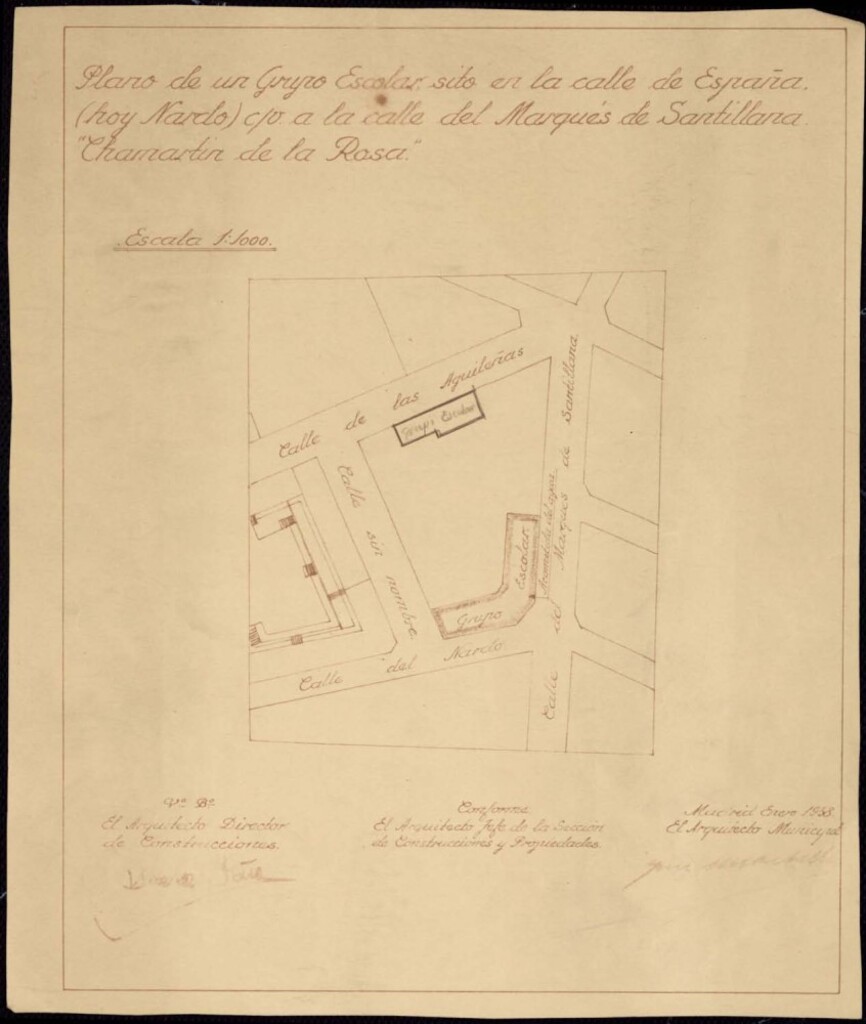 Plano de un Grupo Escolar sito en la calle de España.
(hoy Nardo) c/v a la calle del Marqués de Santillana.
"Chamartin de la Rosa."
Escala 1:1000.
Calle de las Aguileñas
Grupo Escolar
Calle sin nombre
Acometida del agua
Calle del Marqués de Santillana
Grupo Escolar
Calle del Nardo
Vº Bº
El Arquitecto Director
de Construcciones.
Conforme
El Arquitecto Jefe de la Sección
de Construcciones y Propiedades.
Madrid Enero
El Arquitecto Municipal